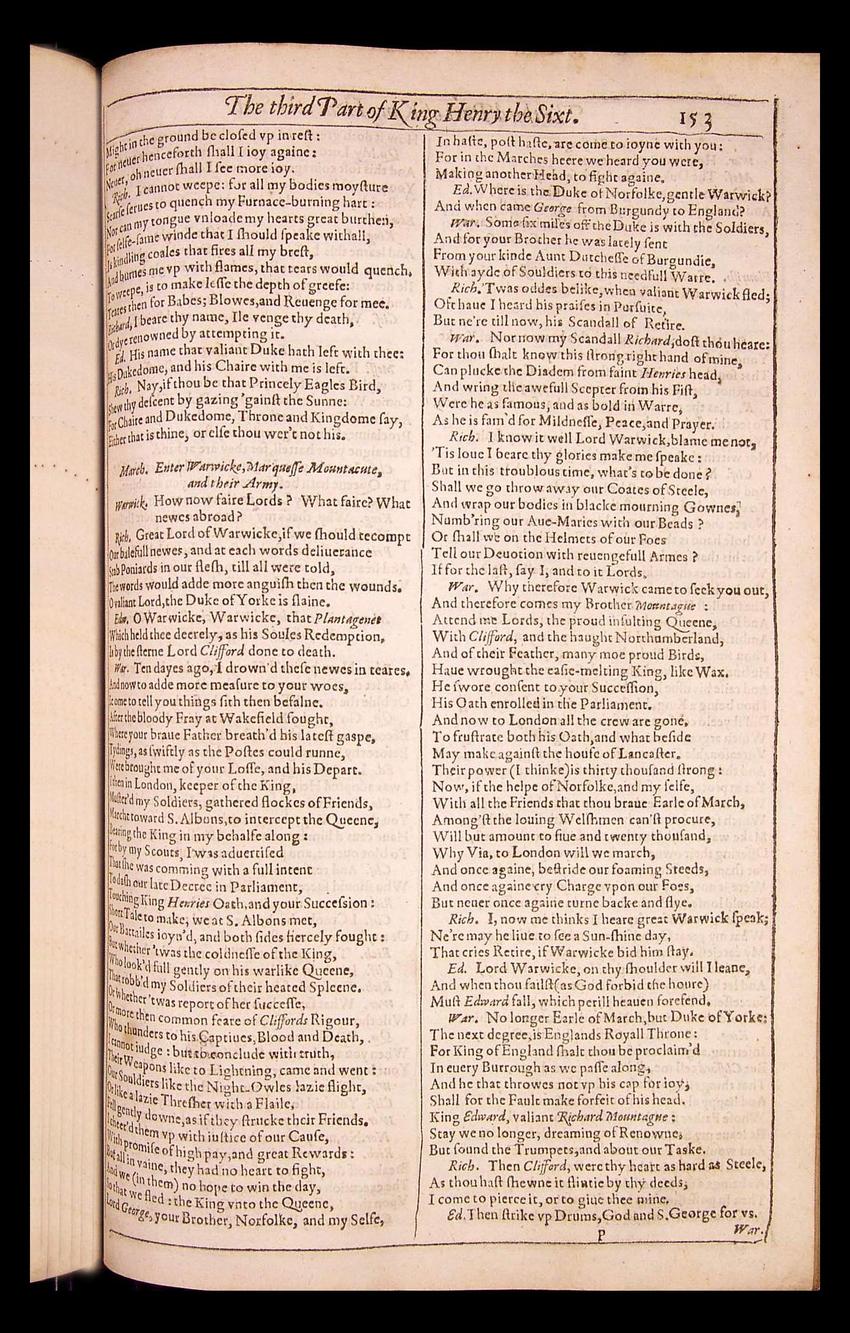 The third Part of King Henry the Sixt.
153
Might in the ground be closed vp in rest:
For neuer henceforth shall I ioy againe:
Neuer, oh neuer shall I see more ioy.
Rich. I cannot weepe: for all my bodies moysture
Scarse serues to quench my Furnace-burning hart:
Nor can my tongue vnloade my hearts great burthen,
For selfe-same winde that I should speake withall,
Is kindling coales that fires all my brest,
And burnes me vp with flames, that tears would quench.
To weepe, is to make lesse the depth of greefe:
Teares then for Babes; Blowes, and Reuenge for mee.
Richard, I beare thy name, Ile venge thy death,
Or dye renowned by attempting it.
Ed. His name that valiant Duke hath left with thee:
His Dukedome, and his Chaire with me is left.
Rich. Nay, if thou be that Princely Eagles Bird,
Shew thy descent by gazing 'gainst the Sunne:
For Chaire and Dukedome, Throne and Kingdome say,
Either that is thine, or else thou wer't not his.
March. Enter Warwicke, Marquesse Mountacute,
and their Army.
Warwick. How now faire Lords? What faire? What
newes abroad?
Rich. Great Lord of Warwicke, if we should recompt
Our balefull newes, and at each words deliuerance
Stab Poniards in our flesh, till all were told,
The words would adde more anguish then the wounds.
O valiant Lord, the Duke of Yorke is slaine.
Edw. O Warwicke, Warwicke, that Plantagenet
Which held thee deerely, as his Soules Redemption,
Is by the sterne Lord Clifford done to death.
War. Ten dayes ago, I drown'd these newes in teares.
And now to adde more measure to your woes,
I come to tell you things sith then befalne.
After the bloody Fray at Wakefield fought,
Where your braue Father breath'd his latest gaspe,
Tydings, as swiftly as the Postes could runne,
Were brought me of your Losse, and his Depart.
I then in London, keeper of the King,
Muster'd my Soldiers, gathered flockes of Friends,
Marcht toward S. Albons, to intercept the Queene,
Bearing the King in my behalfe along:
For by my Scouts, I was aduertised
That she was comming with a full intent
To dash our late Decree in Parliament,
Touching King Henries Oath, and your Succession:
Short Tale to make, we at S. Albons met,
Our Battailes ioyn'd, and both sides fiercely fought:
But whether 'twas the coldnesse of the King,
Who look'd full gently on his warlike Queene,
That robb'd my Soldiers of their heated Spleene.
Or whether 'twas report of her successe,
Or more then common feare of Cliffords Rigour,
Who thunders to his Captiues, Blood and Death,
I cannot iudge: but to conclude with truth,
Their Weapons like to Lightning, came and went:
Our Souldiers like the Night-Owles lazie flight,
Or like a lazie Thresher with a Flaile,
Fell gently downe, as if they strucke their Friends.
I cheer'd them vp with iustice of our Cause,
With promise of high pay, and great Rewards:
But all in vaine, they had no heart to fight,
And we (in them) no hope to win the day,
So that we fled: the King vnto the Queene,
Lord George, your Brother, Norfolke, and my Selfe,
In haste, post haste, are come to ioyne with you:
For in the Marches heere we heard you were,
Making another Head, to fight againe.
Ed. Where is the Duke of Norfolke, gentle Warwick?
And when came George from Burgundy to England?
War. Some six miles off the Duke is with the Soldiers,
And for your Brother he was lately sent
From your kinde Aunt Dutchesse of Burgundie,
With ayde of Souldiers to this needfull Warre.
Rich. 'Twas oddes belike, when valiant Warwick fled;
Oft haue I heard his praises in Pursuite,
But ne're till now, his Scandall of Retire.
War. Nor now my Scandall Richard, dost thou heare:
For thou shalt know this strong right hand of mine,
Can plucke the Diadem from faint Henries head,
And wring the awefull Scepter from his Fist,
Were he as famous, and as bold in Warre,
As he is fam'd for Mildnesse, Peace, and Prayer.
Rich. I know it well Lord Warwick, blame me not,
'Tis loue I beare thy glories make me speake:
But in this troublous time, what's to be done?
Shall we go throw away our Coates of Steele,
And wrap our bodies in blacke mourning Gownes,
Numb'ring our Aue-Maries with our Beads?
Or shall we on the Helmets of our Foes
Tell our Deuotion with reuengefull Armes?
If for the last, say I, and to it Lords.
War. Why therefore Warwick came to seek you out,
And therefore comes my Brother Mountague:
Attend me Lords, the proud insulting Queene,
With Clifford, and the haught Northumberland,
And of their Feather, many moe proud Birds,
Haue wrought the easie-melting King, like Wax.
He swore consent to your Succession,
His Oath enrolled in the Parliament.
And now to London all the crew are gone,
To frustrate both his Oath, and what beside
May make against the house of Lancaster.
Their power (I thinke) is thirty thousand strong:
Now, if the helpe of Norfolke, and my selfe,
With all the Friends that thou braue Earle of March,
Among'st the louing Welshmen can'st procure,
Will but amount to fiue and twenty thousand,
Why Via, to London will we march,
And once againe, bestride our foaming Steeds,
And once againe cry Charge vpon our Foes,
But neuer once againe turne backe and flye.
Rich. I, now me thinks I heare great Warwick speak;
Ne're may he liue to see a Sun-shine day,
That cries Retire, if Warwicke bid him stay.
Ed. Lord Warwicke, on thy shoulder will I leane,
And when thou failst (as God forbid the houre)
Must Edward fall, which perill heauen forefend.
War. No longer Earle of March, but Duke of Yorke:
The next degree, is Englands Royall Throne:
For King of England shalt thou be proclaim'd
In euery Burrough as we passe along,
And he that throwes not vp his cap for ioy,
Shall for the Fault make forfeit of his head.
King Edward, valiant Richard Mountague:
Stay we no longer, dreaming of Renowne,
But sound the Trumpets, and about our Taske.
Rich. Then Clifford, were thy heart as hard as Steele,
As thou hast shewne it flintie by thy deeds,
I come to pierce it, or to giue thee mine.
Ed. Then strike vp Drums, God and S. George for vs.
p
War.